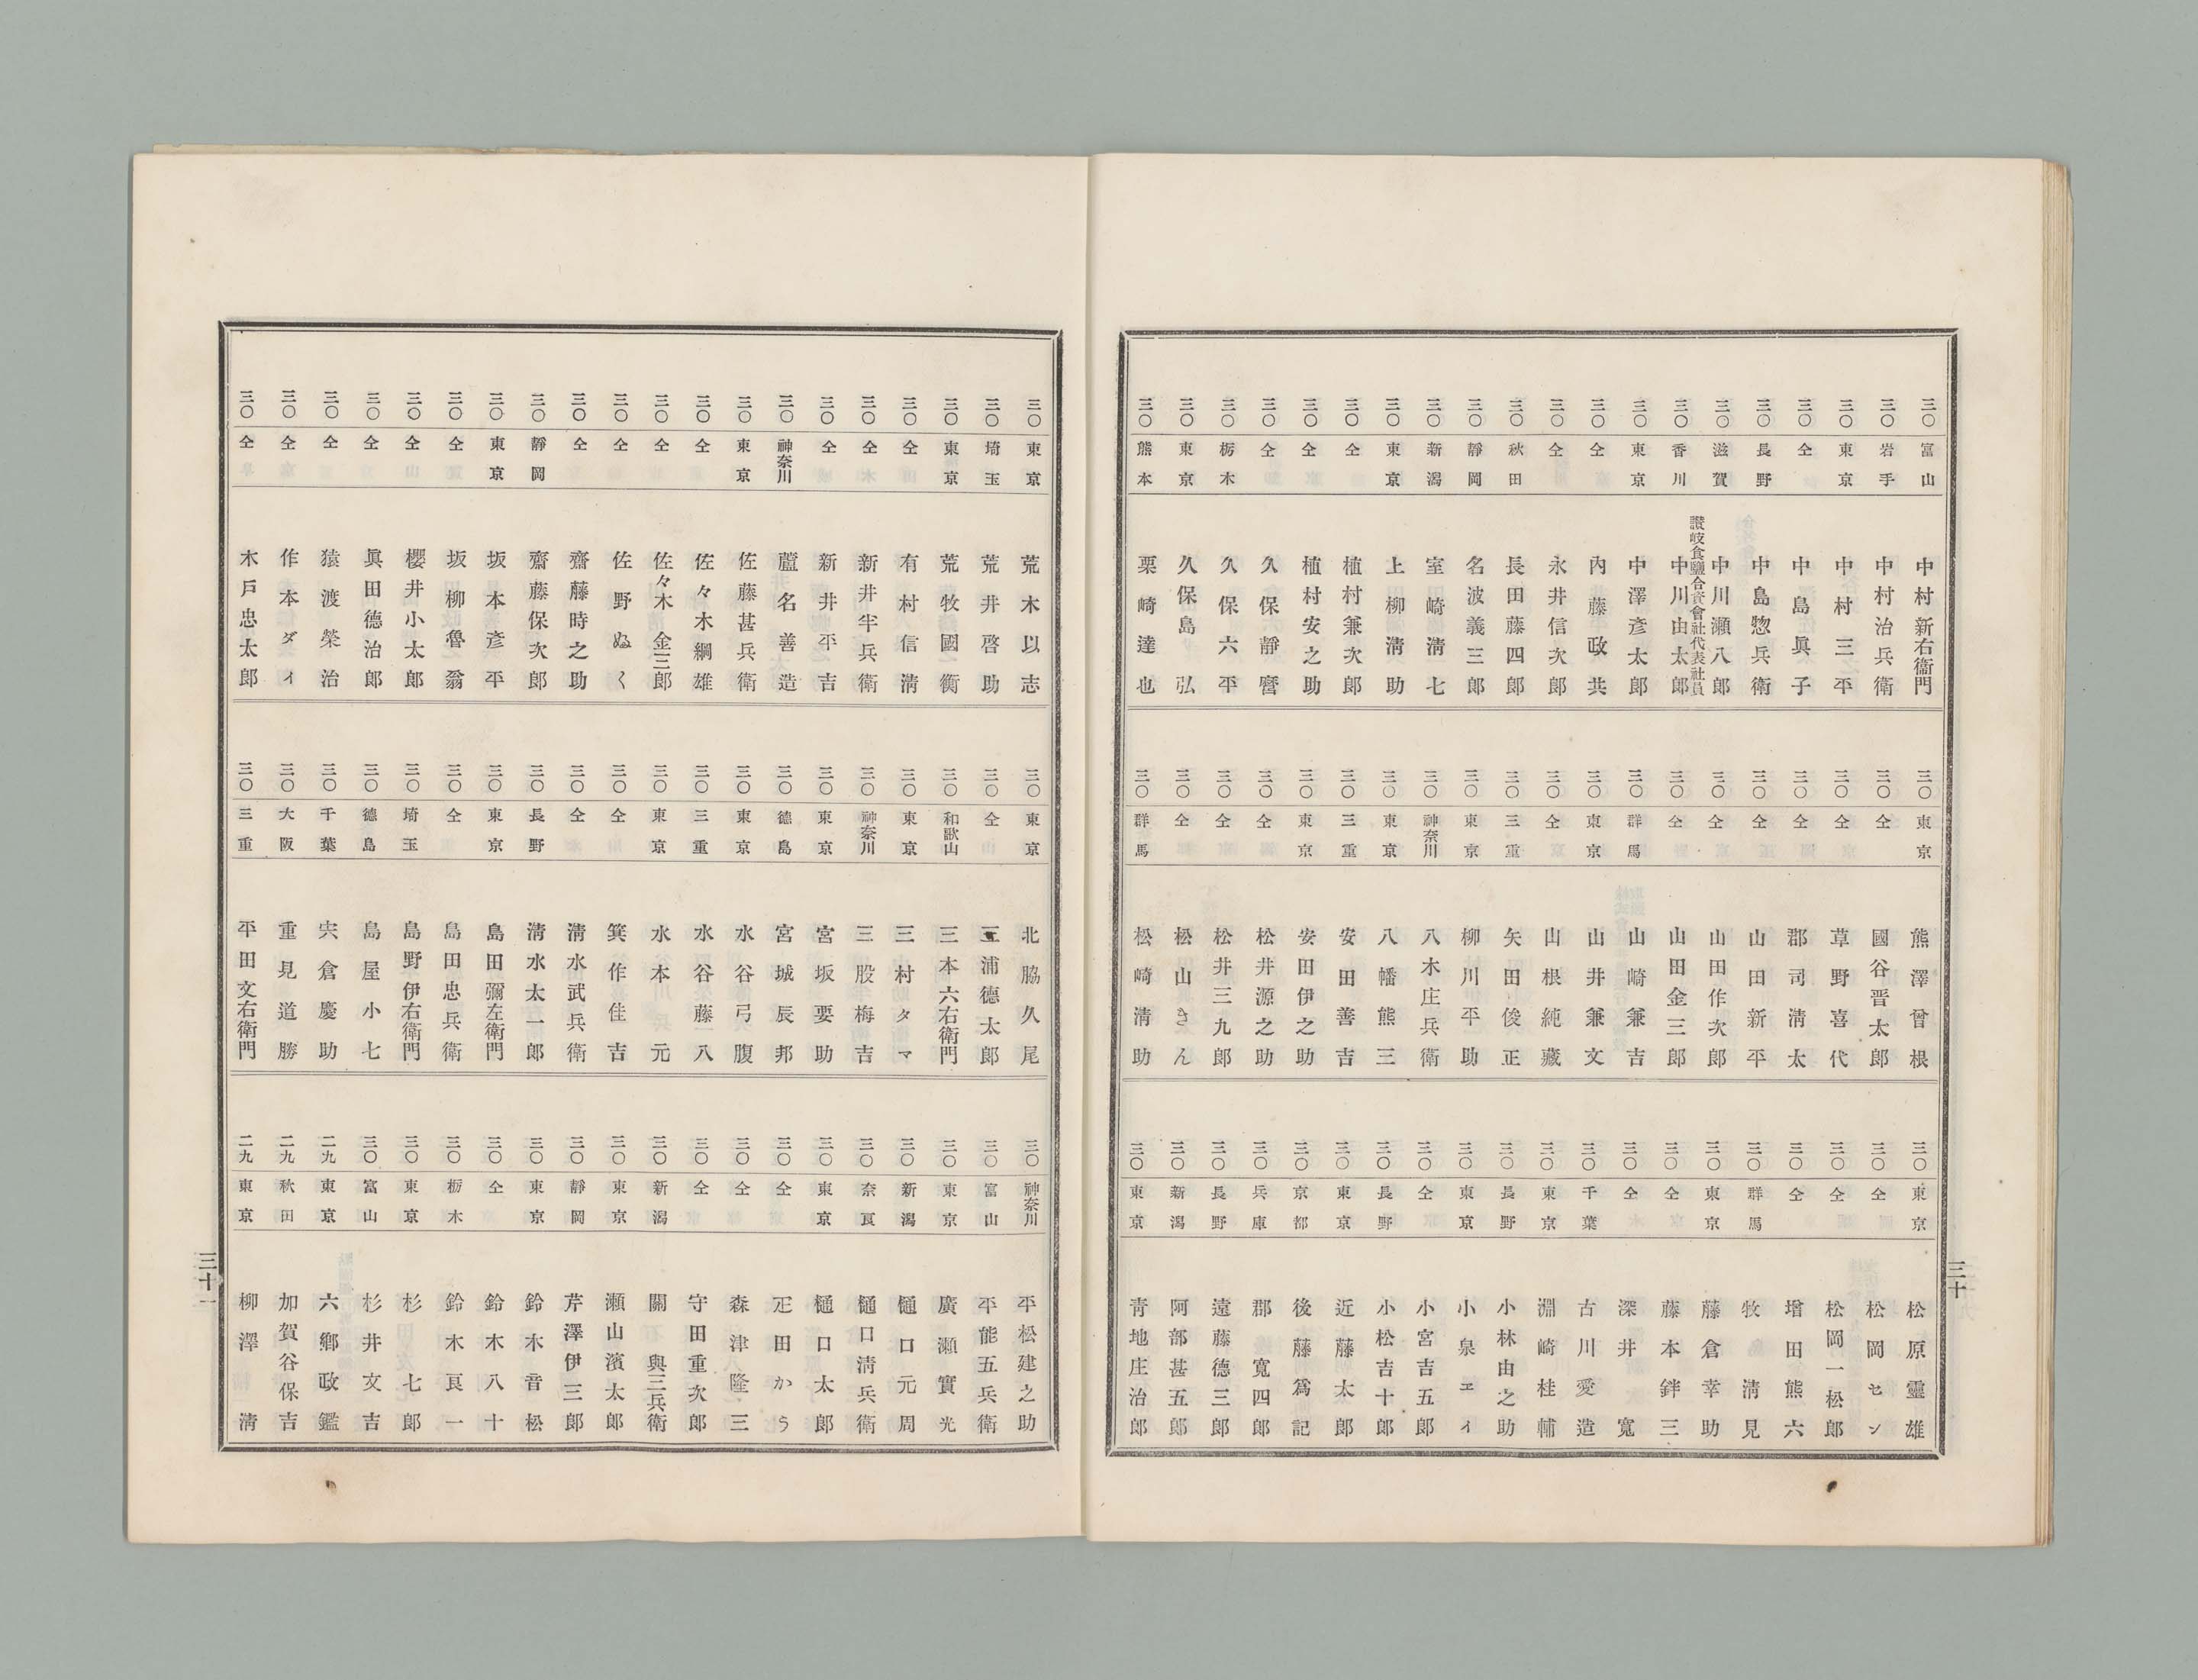 三〇 富山 中村新右衞門
三〇 岩手 中村治兵衛
三〇 東京 中村三平
三〇 仝 中島眞子
三〇 長野 中島惣兵衛
三〇 滋賀 中川瀬八郎
三〇 香川 讃岐食鹽合資會社代表社員 中川由太郎
三〇 東京 中澤彦太郎
三〇 仝 內藤政共
三〇 仝 永井信次郎
三〇 秋田 長田藤四郎
三〇 靜岡 名波義三郎
三〇 新潟 室崎淸七
三〇 東京 上柳淸助
三〇 仝 植村兼次郎
三〇 仝 植村安之助
三〇 仝 久保靜麿
三〇 栃木 久保六平
三〇 東京 久保島弘
三〇 熊本 栗崎達也
三〇 東京 熊澤曾根
三〇 仝 國谷晋太郎
三〇 仝 草野喜代
三〇 仝 郡司淸太
三〇 仝 山田新平
三〇 仝 山田作次郎
三〇 仝 山田金三郎
三〇 群馬 山崎兼吉
三〇 東京 山井兼文
三〇 仝 山根純藏
三〇 三重 矢田俊正
三〇 東京 柳川平助
三〇 神奈川 八木庄兵衛
三〇 東京 八幡熊三
三〇 三重 安田善吉
三〇 東京 安田伊之助
三〇 仝 松井源之助
三〇 仝 松井三九郎
三〇 仝 松山きん
三〇 群馬 松崎淸助
三〇 東京 松原靈雄
三〇 仝 松岡セン
三〇 仝 松岡一松郎
三〇 仝 增田熊六
三〇 群馬 牧島淸見
三〇 東京 藤倉幸助
三〇 仝 藤本鉡三
三〇 仝 深井寬
三〇 千葉 古川愛造
三〇 東京 淵崎桂輔
三〇 長野 小林由之助
三〇 東京 小泉エイ
三〇 仝 小宮吉五郎
三〇 長野 小松吉十郎
三〇 東京 近藤太郎
三〇 京都 後藤爲記
三〇 兵庫 郡寬四郎
三〇 長野 遠藤德三郎
三〇 新潟 阿部甚五郎
三〇 東京 靑地庄治郎
三十
三〇 東京 荒木以志
三〇 埼玉 荒井啓助
三〇 東京 荒牧國衡
三〇 仝 有村信淸
三〇 仝 新井半兵衛
三〇 仝 新井平吉
三〇 神奈川 蘆名善造
三〇 東京 佐藤甚兵衛
三〇 仝 佐々木綱雄
三〇 仝 佐々木金三郎
三〇 仝 佐野ぬく
三〇 仝 齋藤時之助
三〇 靜岡 齋藤保次郎
三〇 東京 坂本彥平
三〇 仝 坂柳魯翁
三〇 仝 櫻井小太郎
三〇 仝 眞田德治郎
三〇 仝 猿渡榮治
三〇 仝 作本ダイ
三〇 仝 木戸忠太郎
三〇 東京 北脇久尾
三〇 仝 三浦德太郎
三〇 和歌山 三本六右衛門
三〇 東京 三村タマ
三〇 神奈川 三股梅吉
三〇 東京 宮坂要助
三〇 德島 宮城辰邦
三〇 東京 水谷弓腹
三〇 三重 水谷藤八
三〇 東京 水本元
三〇 仝 箕作佳吉
三〇 仝 淸水武兵衛
三〇 長野 淸水太一郎
三〇 東京 島田彌左衛門
三〇 仝 島田忠兵衛
三〇 埼玉 島野伊右衛門
三〇 德島 島屋小七
三〇 千葉 宍倉慶助
三〇 大阪 重見道勝
三〇 三重 平田文右衛門
三〇 神奈川 平松建之助
三〇 富山 平能五兵衛
三〇 東京 廣瀬實光
三〇 新潟 樋口元周
三〇 奈良 樋口淸兵衛
三〇 東京 樋口太郎
三〇 仝 疋田かう
三〇 仝 森津隆三
三〇 仝 守田重次郎
三〇 新潟 關與三兵衛
三〇 東京 瀬山濱太郎
三〇 靜岡 芹澤伊三郎
三〇 東京 鈴木音松
三〇 仝 鈴木八十
三〇 栃木 鈴木良一
三〇 東京 杉七郎
三〇 富山 杉井文吉
二九 東京 六鄕政鑑
二九 秋田 加賀谷保吉
二九 東京 柳澤淸
三十一